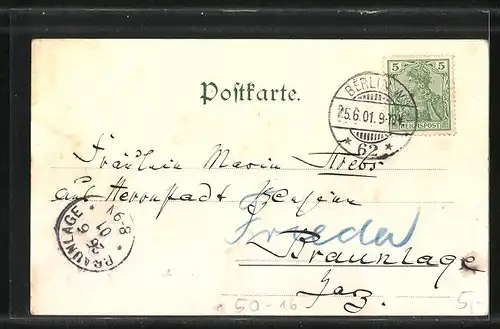 5 5
REICHSPOST
BERLIN W.
25.6.01. 9-10V.
* 62 *
Postkarte.
Fräulein Marie Krebs
aus Herrnstadt
Braunlage
Harz.
BRAUNLAGE
26 6 01
6-8
50-16
5,-